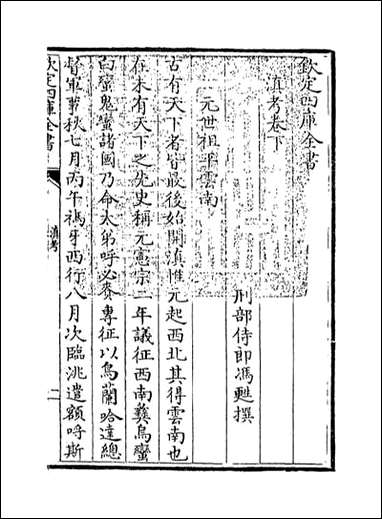 欽定四庫全書
滇考卷下
刑部侍郎馮甦撰
元世祖平雲南
古有天下者皆最後始開滇惟元起西北其得雲南也
在未有天下之先史稱元憲宗二年議征西南彝烏蠻
白蠻鬼蠻諸國乃命太弟呼必賚專征以烏蘭哈達總
督軍事秋七月丙午禡牙西行八月次臨洮遣額呼斯
欽定四庫全書
滇考